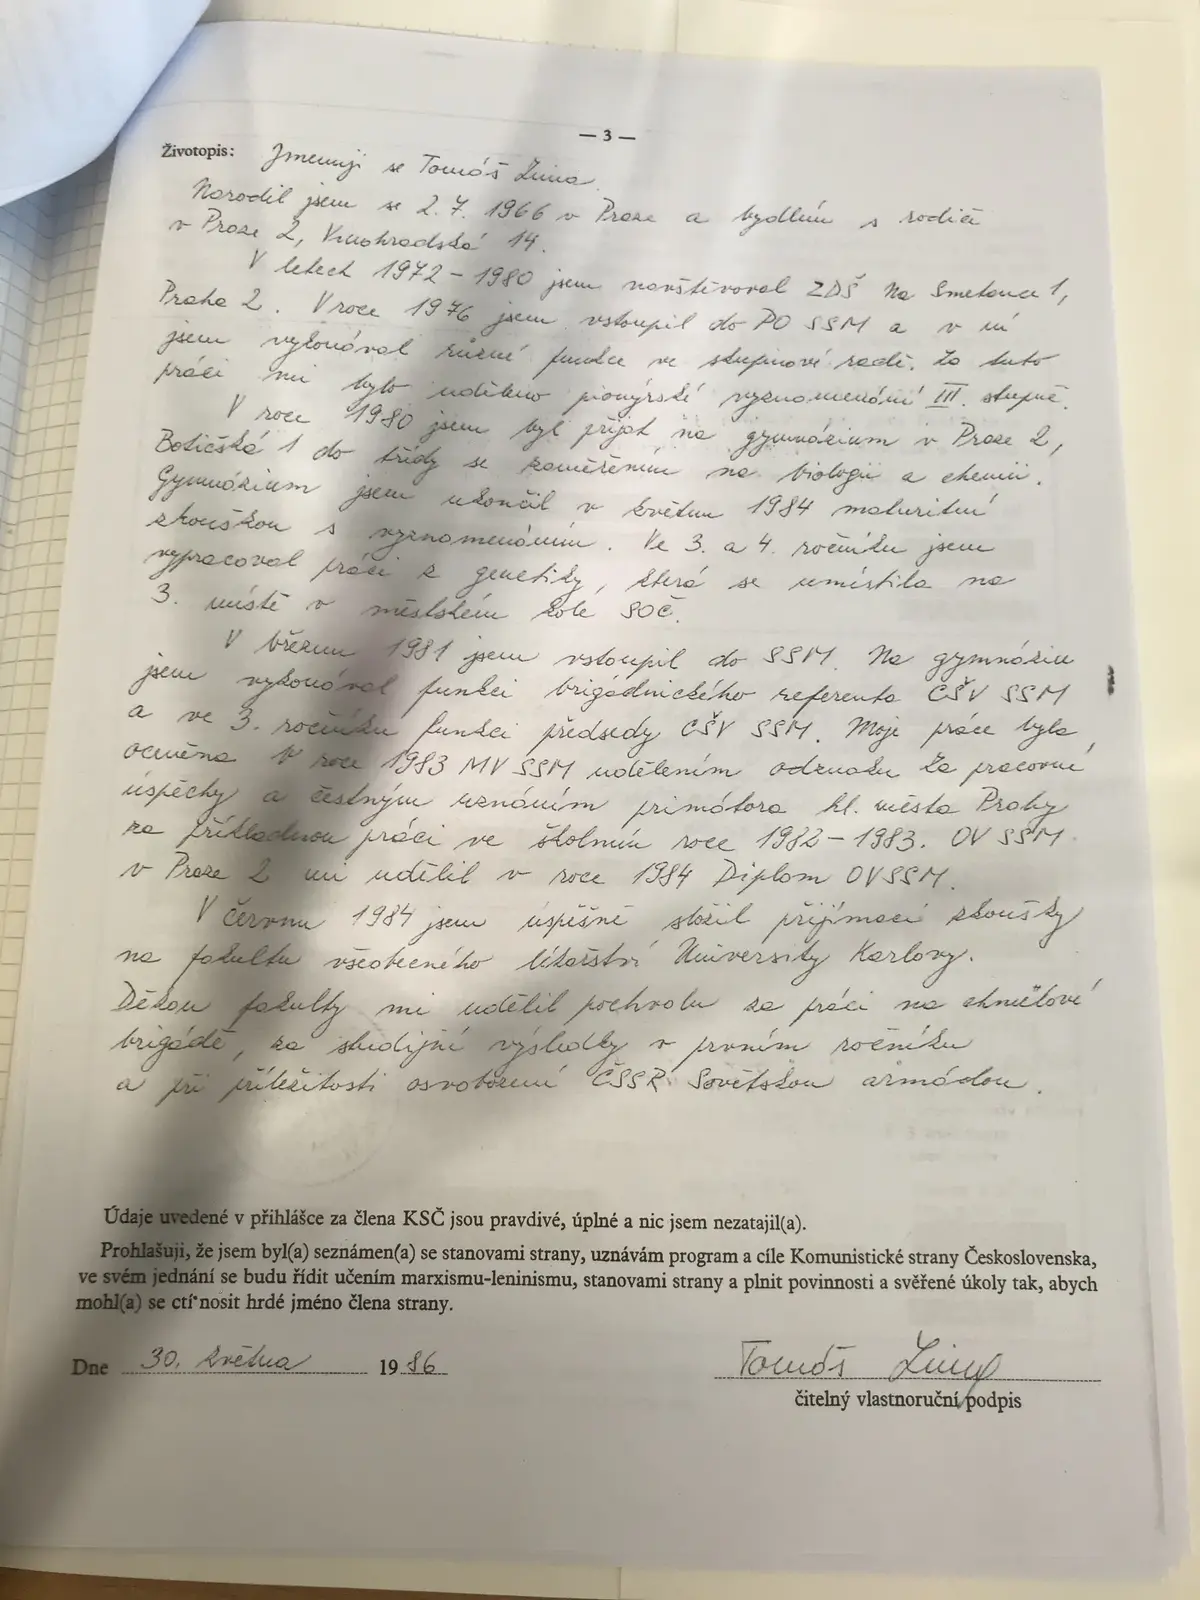 — 3 —
Životopis: Jmenuji se Tomáš Zima.
Narodil jsem se 2. 7. 1966 v Praze a bydlím s rodiči
v Praze 2, Vinohradská 14.
V letech 1972 – 1980 jsem navštěvoval ZDŠ Na Smetance 1,
Praha 2. V roce 1976 jsem vstoupil do PO SSM a v ní
jsem vykonával různé funkce ve skupinové radě. Za tuto
práci mi bylo uděleno pionýrské vyznamenání III. stupně.
V roce 1980 jsem byl přijat na gymnázium v Praze 2,
Botičská 1 do třídy se zaměřením na biologii a chemii.
Gymnázium jsem ukončil v květnu 1984 maturitní
zkouškou s vyznamenáním. Ve 3. a 4. ročníku jsem
vypracoval práci z genetiky, která se umístila na
3. místě v městském kole SOČ.
V březnu 1981 jsem vstoupil do SSM. Na gymnáziu
jsem vykonával funkci brigádnického referenta CŠV SSM
a ve 3. ročníku funkci předsedy CŠV SSM. Moje práce byla
oceněna v roce 1983 MV SSM udělením odznaku Za pracovní
úspěchy a čestným uznáním primátora hl. města Prahy
za příkladnou práci ve školním roce 1982 – 1983. OV SSM
v Praze 2 mi udělil v roce 1984 Diplom OV SSM.
V červnu 1984 jsem úspěšně složil přijímací zkoušky
na fakultu všeobecného lékařství University Karlovy.
Děkan fakulty mi udělil pochvalu za práci na chmelové
brigádě, za studijní výsledky v prvním ročníku
a při příležitosti osvobození ČSSR Sovětskou armádou.
Údaje uvedené v přihlášce za člena KSČ jsou pravdivé, úplné a nic jsem nezatajil(a).
Prohlašuji, že jsem byl(a) seznámen(a) se stanovami strany, uznávám program a cíle Komunistické strany Československa,
ve svém jednání se budu řídit učením marxismu-leninismu, stanovami strany a plnit povinnosti a svěřené úkoly tak, abych
mohl(a) se ctí nosit hrdé jméno člena strany.
Dne 30. května 1986 Tomáš Zima
čitelný vlastnoruční podpis